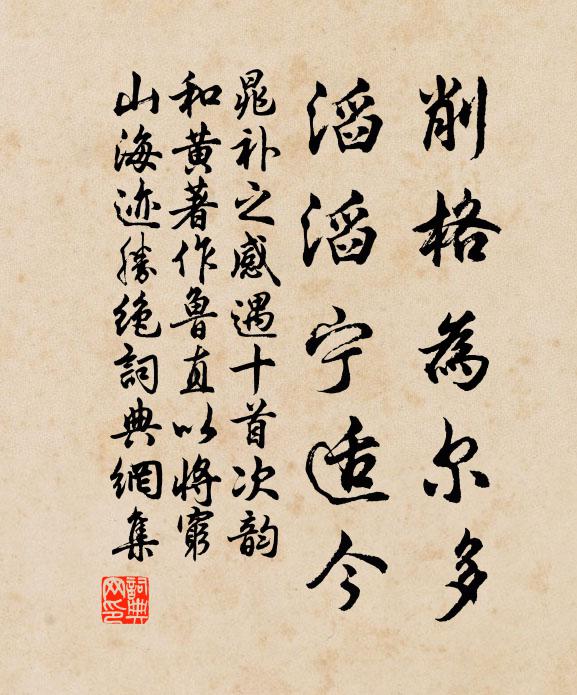 削格為尔多
滔滔宁适今
晁补之感遇十首次韵
和黄著作鲁直以将穷
山海迹勝绝詞典網集
詞典網印